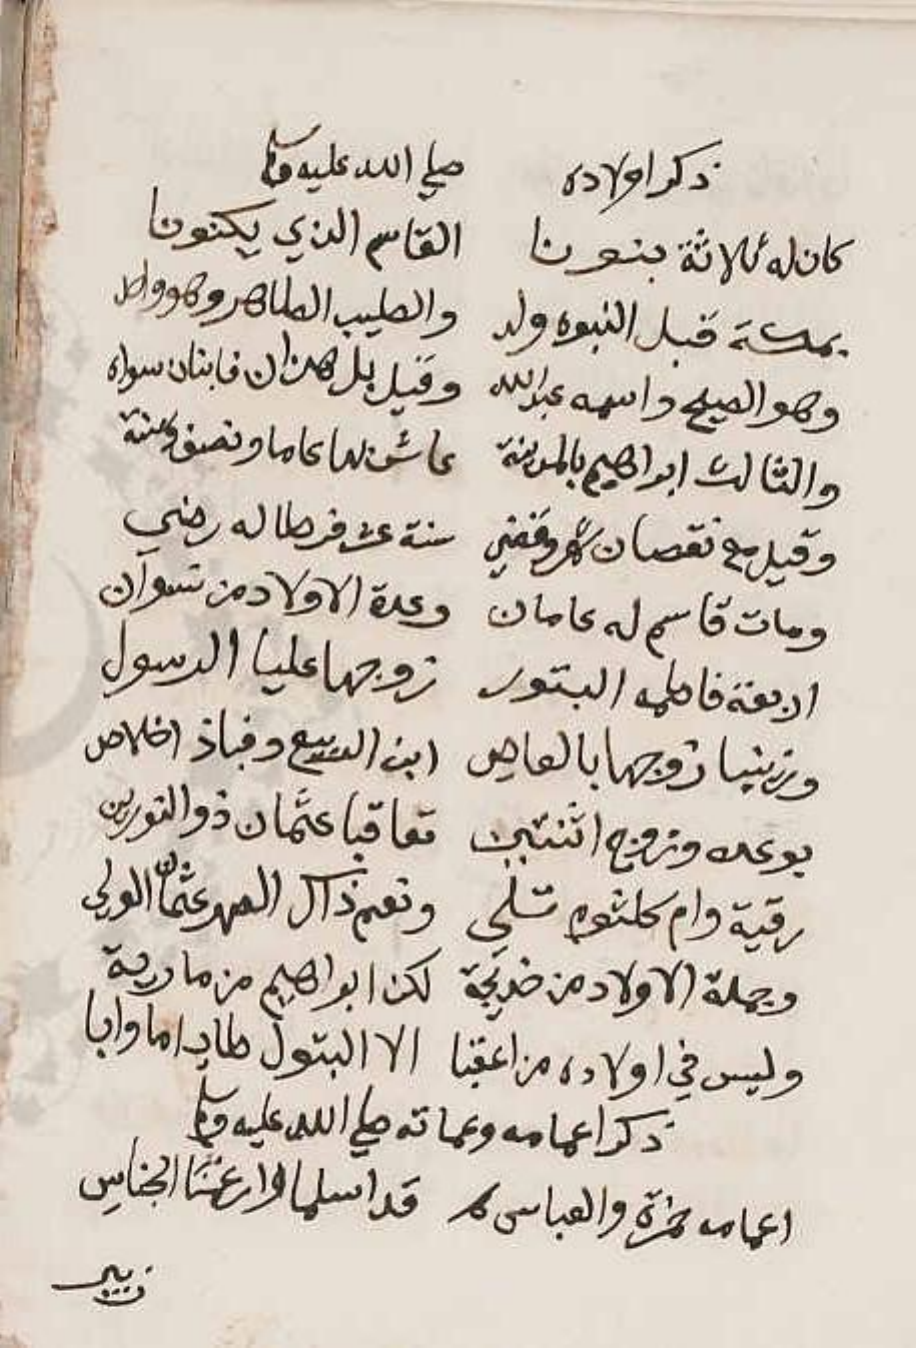 ذكر اولاده صلي الله عليه وسلم
كان له ثلاثة بنونا القاسم الذي يكنونا
بمكة قبل النبوه ولد والطيب الطاهر وهو واحد
وهو الصيح واسمه عبدالله وقيل بل هذان فابنان سواه
والثالث ابراهيم بالمدينة عاش بها عاما ونصف سنة
وقيل مع نقصان شهر وقضي سنة عشر فرطا له رضي
ومات قاسم له عامان وعدة الاولاد من نسوان
اربعة فاطمه البتور زوجها عليا الرسول
وزينبا زوجها بالعاص ابن الربيع وفياذ اخلاص
بوعده وزوج اثنتين تعاقبا عثمان ذو النورين
رقية وام كلثوم تلي ونعم ذاك الصهر عثمان الولي
وجملة الاولاد من خديجة لكن ابراهيم من مارية
وليس في اولاده من اعقبا الا البتول طاب اما وابا
ذكر اعمامه وعماته صلي الله عليه وسلم
اعمامه حمزة والعباس قد اسلما الجناس